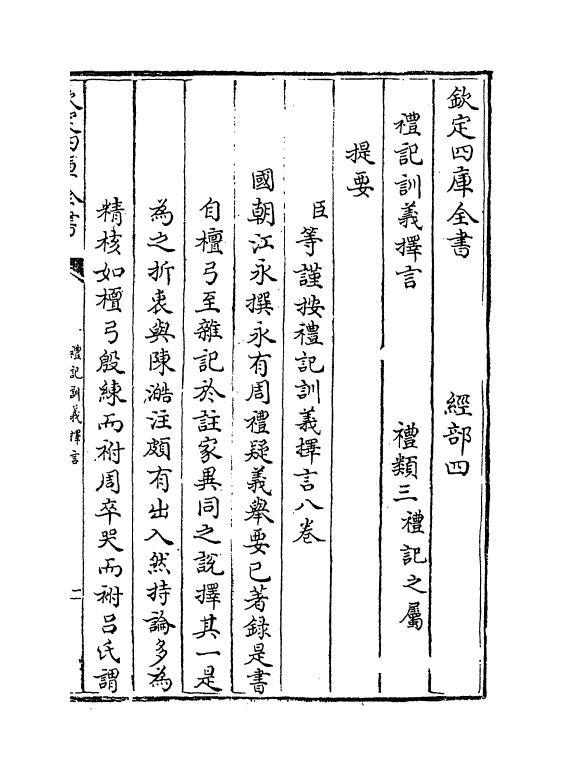 欽定四庫全書　　　　　經部四
禮記訓義擇言　　　　　禮類三禮記之屬
提要
臣等謹按禮記訓義擇言八卷
國朝江永撰永有周禮疑義舉要已著録是書
自檀弓至雜記於註家異同之說擇其一是
為之折衷與陳澔注頗有出入然持論多為
精核如檀弓殷練而祔周卒哭而祔吕氏謂
欽定四庫全書　　禮記訓義擇言　　二